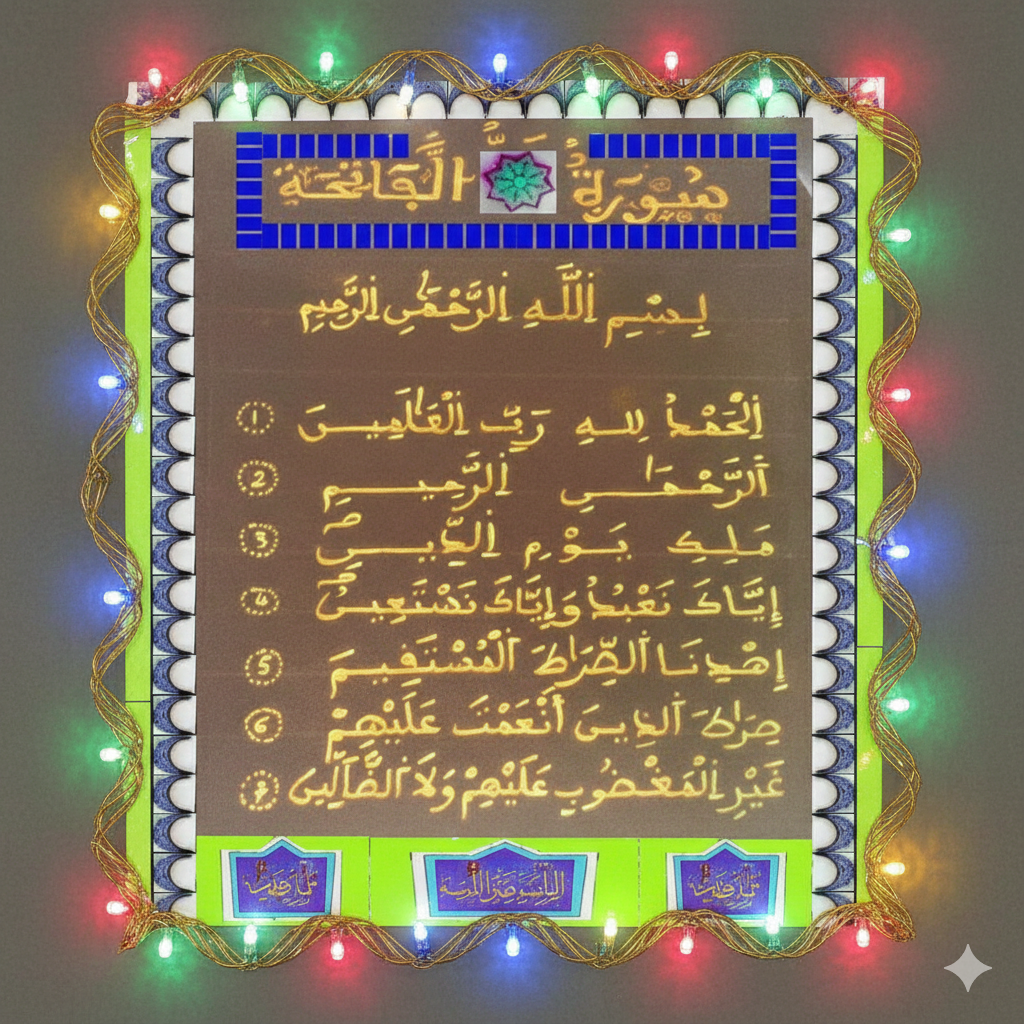 سُورَةُ الْفَاتِحَة
بِسْمِ اِ۬للَّهِ اِ۬لرَّحْمَٰنِ اِ۬لرَّحِيمِ
اِ۬لْحَمْدُ لِلهِ رَبِّ اِ۬لْعَٰلَمِينَ 1
اَ۬لرَّحْمَٰنِ اِ۬لرَّحِيمِ 2
مَلِكِ يَوْمِ اِ۬لدِّينِ 3
إِيَّاكَ نَعْبُدُ وَإِيَّاكَ نَسْتَعِينُ 4
اِهْدِنَا اَ۬لصِّرَٰطَ اَ۬لْمُسْتَقِيمَ 5
صِرَٰطَ اَ۬لذِينَ أَنْعَمْتَ عَلَيْهِمْ 6
غَيْرِ اِ۬لْمَغْضُوبِ عَلَيْهِمْ وَلَا اَ۬لضَّالِّينَ